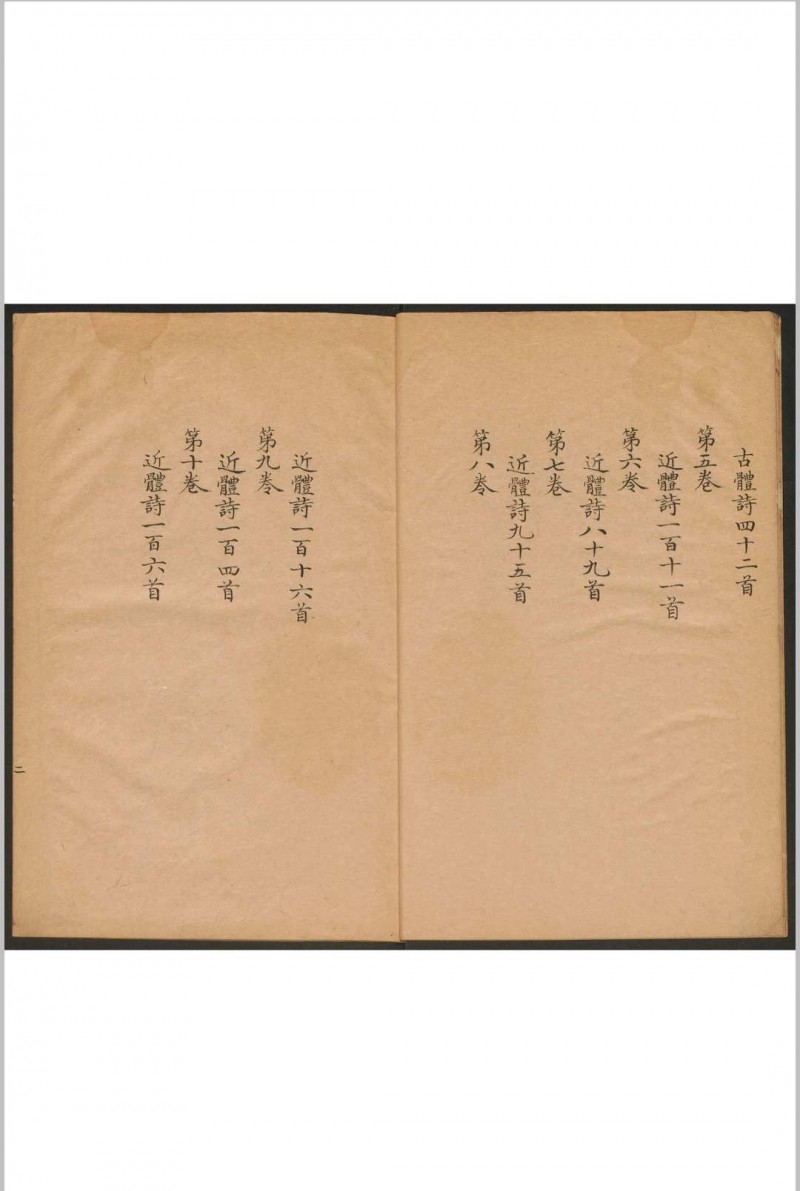 古體詩四十二首
第五卷
近體詩一百十一首
第六卷
近體詩八十九首
第七卷
近體詩九十五首
第八卷
近體詩一百十六首
第九卷
近體詩一百四首
第十卷
近體詩一百六首
二